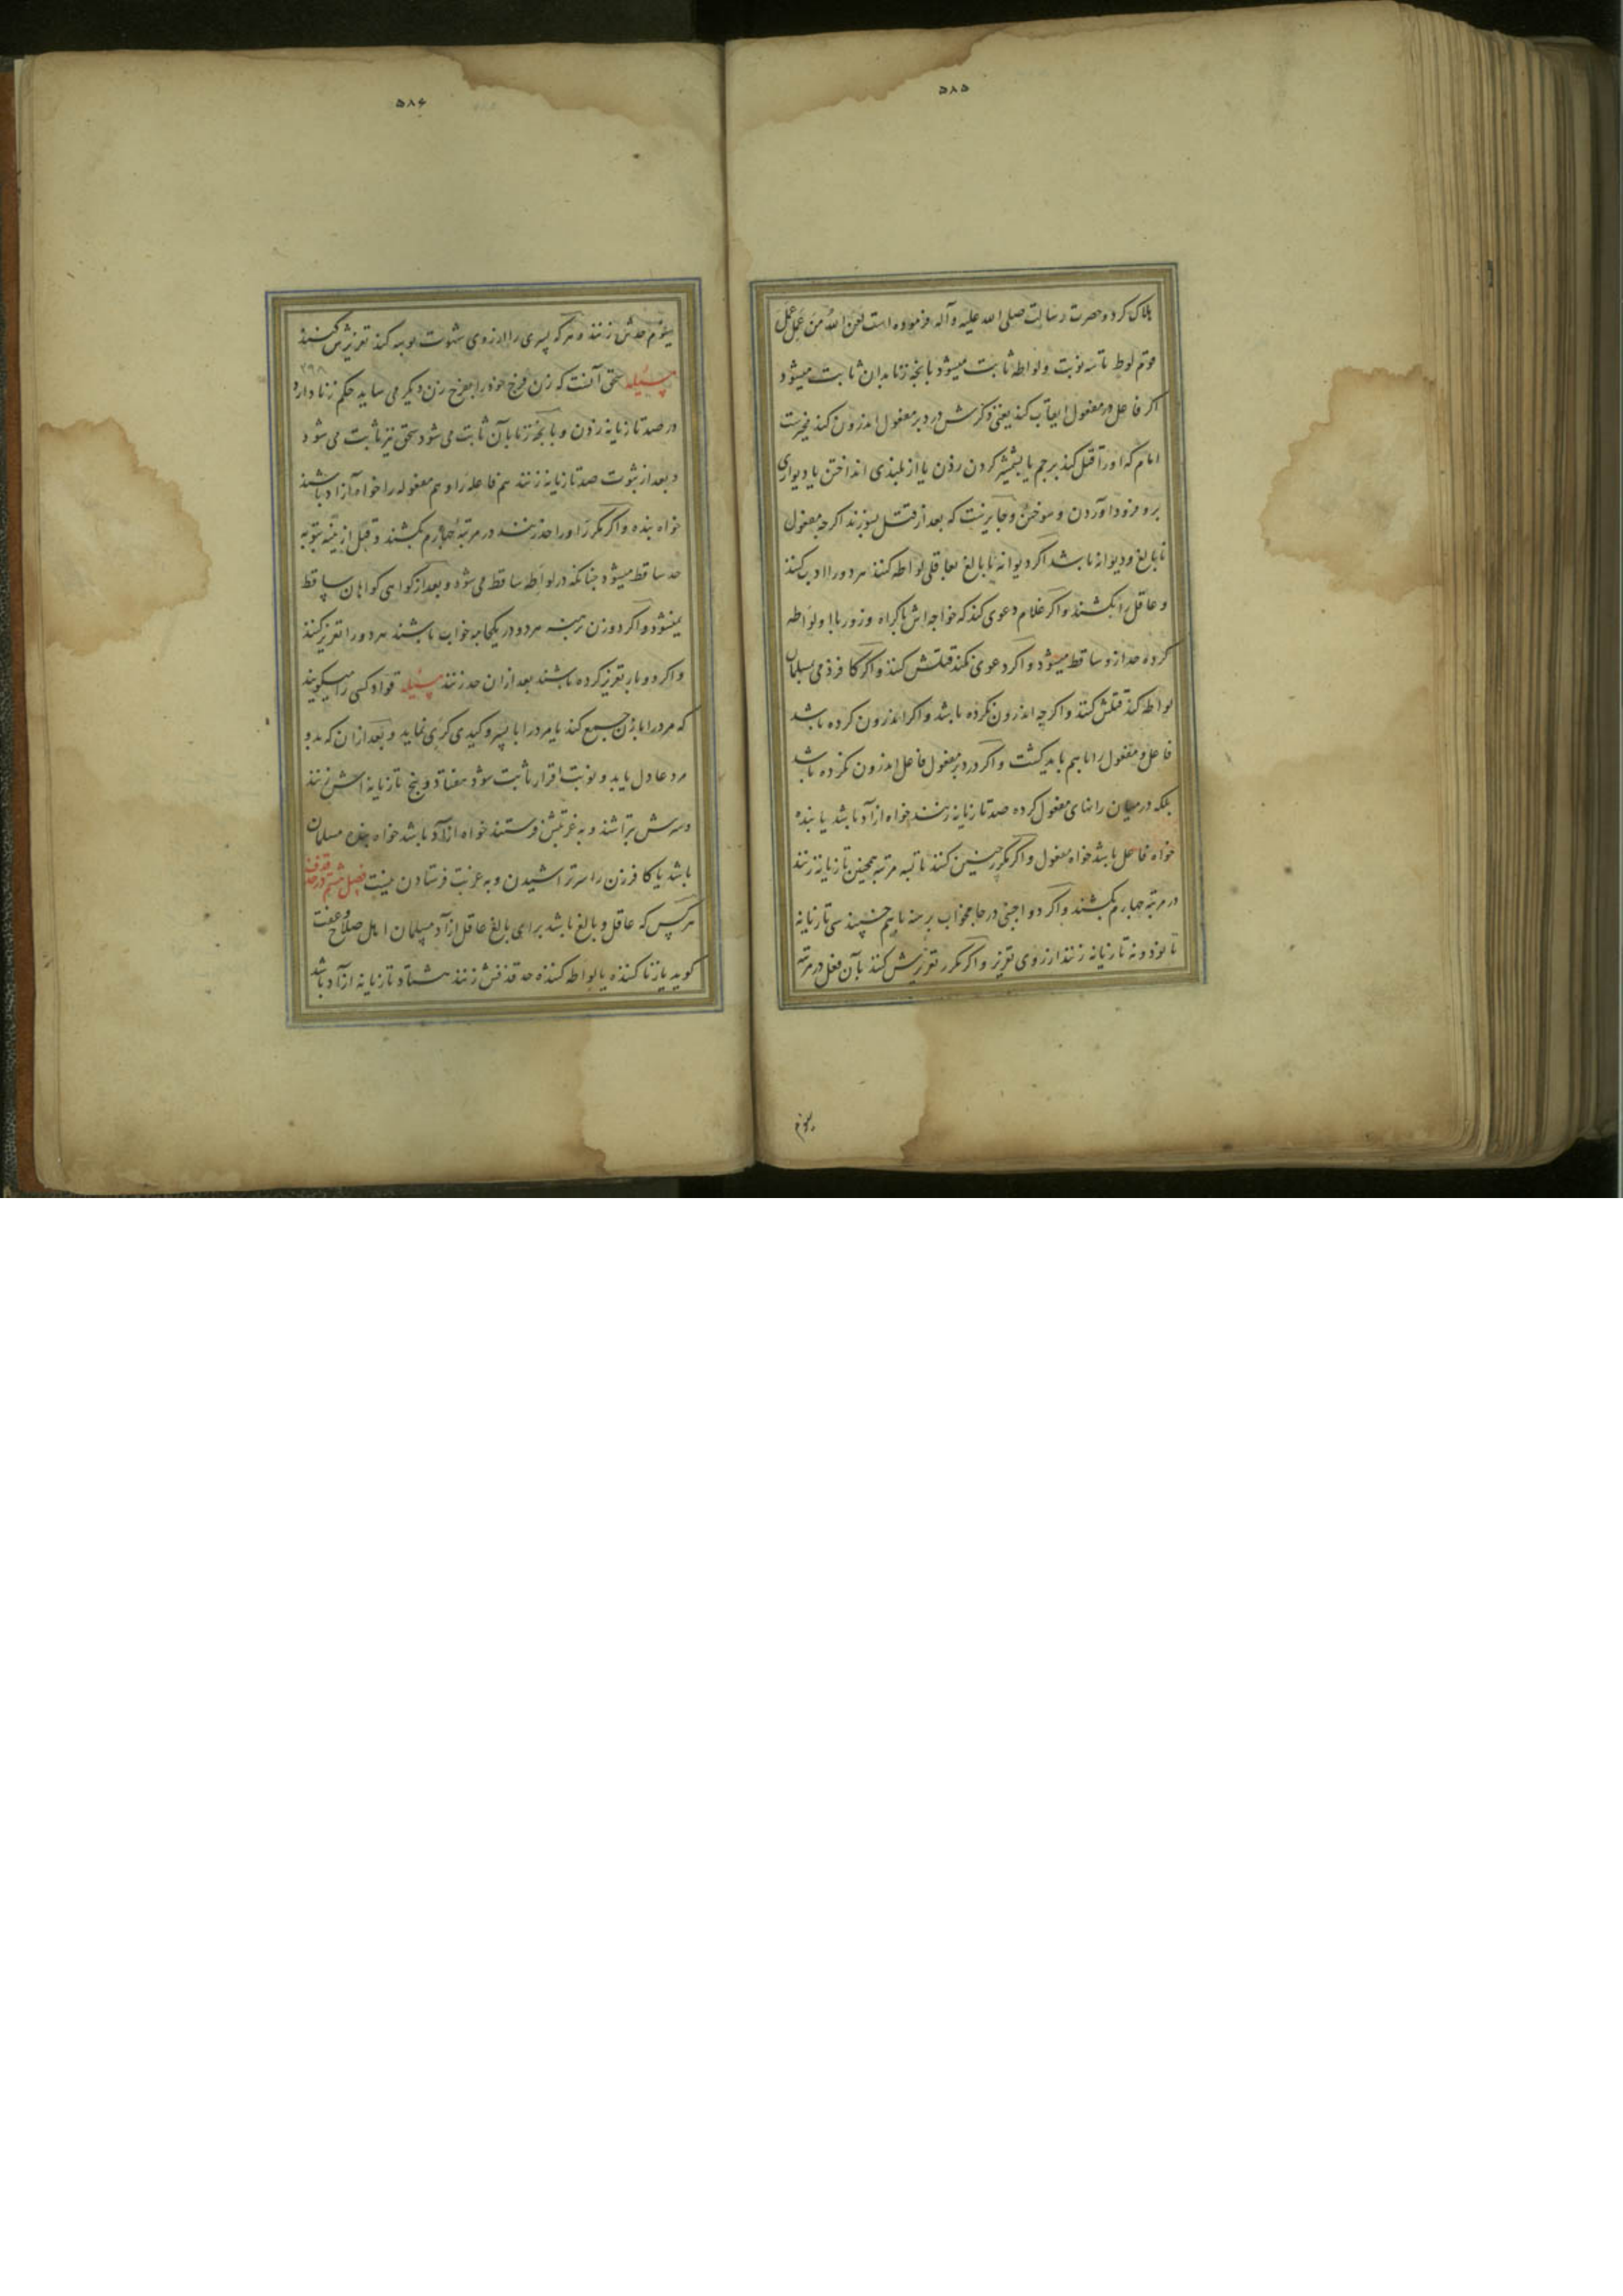 ۵۸۵
هلاک کرد و حضرت رسالت صلی الله علیه و آله فرموده است لعن الله من عمل عمل
قوم لوط تا سه نوبت و لواطه ثابت میشود بانچه زنا بدان ثابت میشود
اگر فاعل در مفعول ایقاب کند یعنی ذکرش در دبر مفعول اندرون کند مخیرست
امام که او را قتل کند برجم یا بشمشیر گردن زدن یا از بلندی انداختن یا دیواری
برو فرود آوردن و سوختن و جایزست که بعد از قتل بسوزند اگرچه مفعول
نابالغ و دیوانه باشد اگر دیوانه یا نابالغ بعاقلی لواطه کنند هر دو را ادب کنند
و عاقل را بکشند و اگر غلام دعوی کند که خواجه اش باکراه و زور با او لواطه
کرده حد ازو ساقط میشود و اگر دعوی نکند قتلش کنند و اگر کافر ذمی بمسلمان
لواطه کند قتلش کنند و اگرچه اندرون نکرده باشد و اگر اندرون کرده باشد
فاعل و مفعول را باهم باید کشت و اگر در دبر مفعول فاعل اندرون نکرده باشد
بلکه در میان رانهای مفعول کرده صد تازیانه زنند خواه ازاد باشد یا بنده
خواه فاعل باشد خواه مفعول و اگر مکرر چنین کنند تا سه مرتبه همچنین تازیانه زنند
در مرتبه چهارم بکشند و اگر دو اجنبی در جامه خواب برهنه باهم خسپند سی تازیانه
تا نود و نه تازیانه زنند از روی تعزیر و اگر مکرر تعزیرش کنند بآن فعل در مرتبه
سوم
۵۸۶
سوم حدش زنند و هرکه پسری را از روی شهوت بوسه کند تعزیرش کنند
۲۹۸
مسئله سحق آنست که زن فرج خود را بفرج زن دیگر می ساید حکم زنا دارد
در صد تازیانه زدن و بانچه زنا بآن ثابت می شود سحق نیز ثابت می شود
و بعد از ثبوت صد تازیانه زنند هم فاعله را و هم مفعوله را خواه آزاد باشند
خواه بنده و اگر مکرر او را حد زنند در مرتبه چهارم بکشند و قبل از بینه بتوبه
حد ساقط میشود چنانکه در لواطه ساقط می شود و بعد از گواهی گواهان ساقط
نمیشود و اگر دو زن برهنه هر دو در یکجامه خواب باشند هر دو را تعزیر کنند
و اگر دو بار تعزیر کرده باشند بعد ازان حد زنند مسئله قواد کسی را میگویند
که مرد را با زن جمع کند یا مرد را با پسر و کیدی کری نماید و بعد ازان که بدو
مرد عادل یا بدو نوبت اقرار ثابت شود هفتاد و پنج تازیانه اش زنند
و سرش بتراشند و به غربتش فرستند خواه ازاد باشد خواه بنده مسلمان
باشد یا کافر زن را سر تراشیدن و به غربت فرستادن نیست فصل هشتم در حد قذف
هر کس که عاقل و بالغ باشد برای بالغ عاقل ازاد مسلمان اهل صلاح و عفت
گوید یا زنا کننده یا لواطه کننده حد قذفش زنند هشتاد تازیانه ازاد باشد